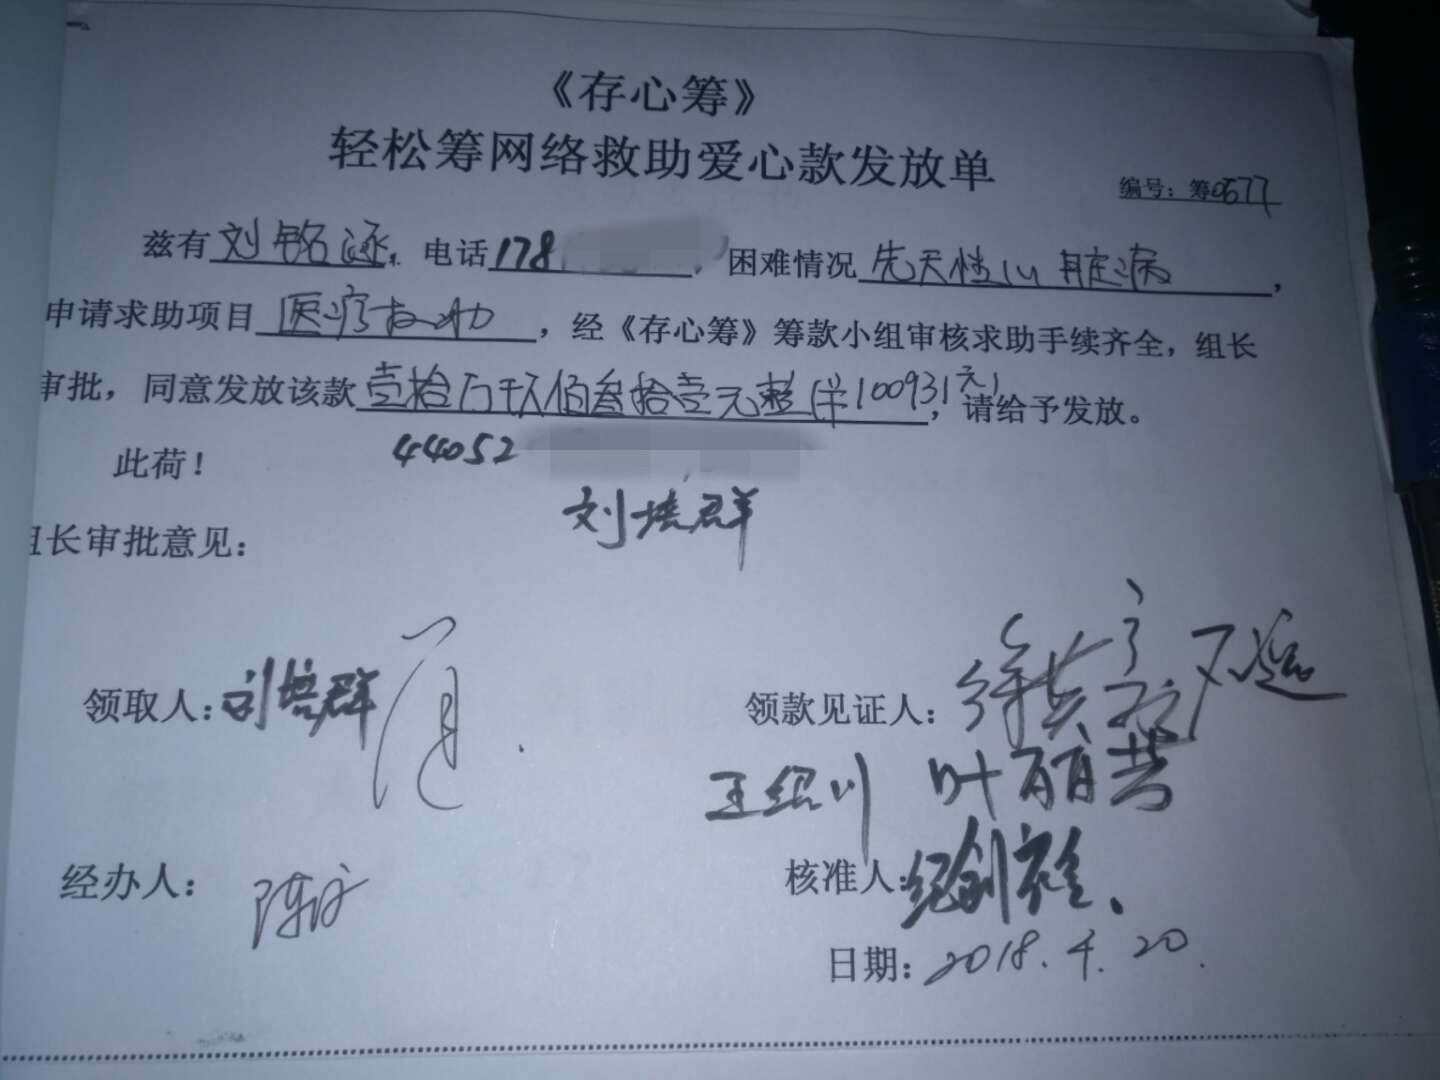 《存心筹》
轻松筹网络救助爱心款发放单
编号：筹0577
兹有刘铭涵，电话178，困难情况先天性心脏病，
申请求助项目医疗救助，经《存心筹》筹款小组审核求助手续齐全，组长
审批，同意发放该款壹拾万玖佰叁拾壹元整(¥100931元)，请给予发放。
此荷！ 44052
刘培群
组长审批意见：
领取人：刘培群 领款见证人：
王绍川 叶丽芸
经办人：陈 核准人：
日期：2018.4.20.